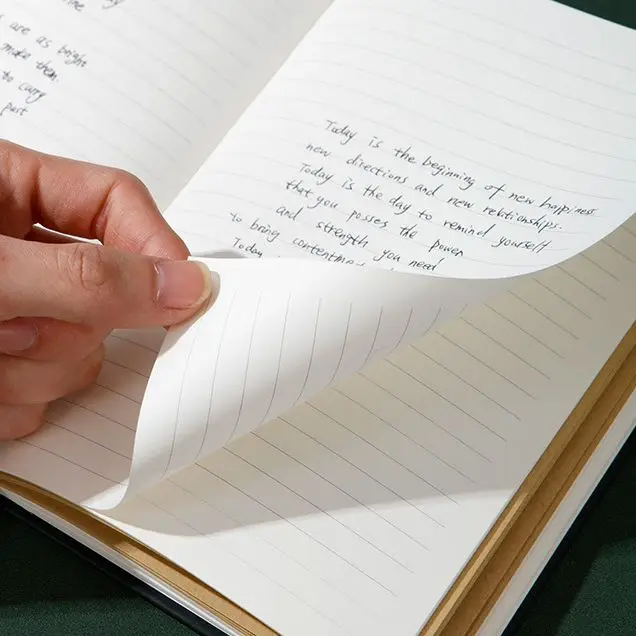 are as bright
make them.
to carry
past
Today is the beginning of new happiness
new directions and new relationships.
Today is the day to remind yourself
that you posses the power
and strength you need
to bring contentm
Today